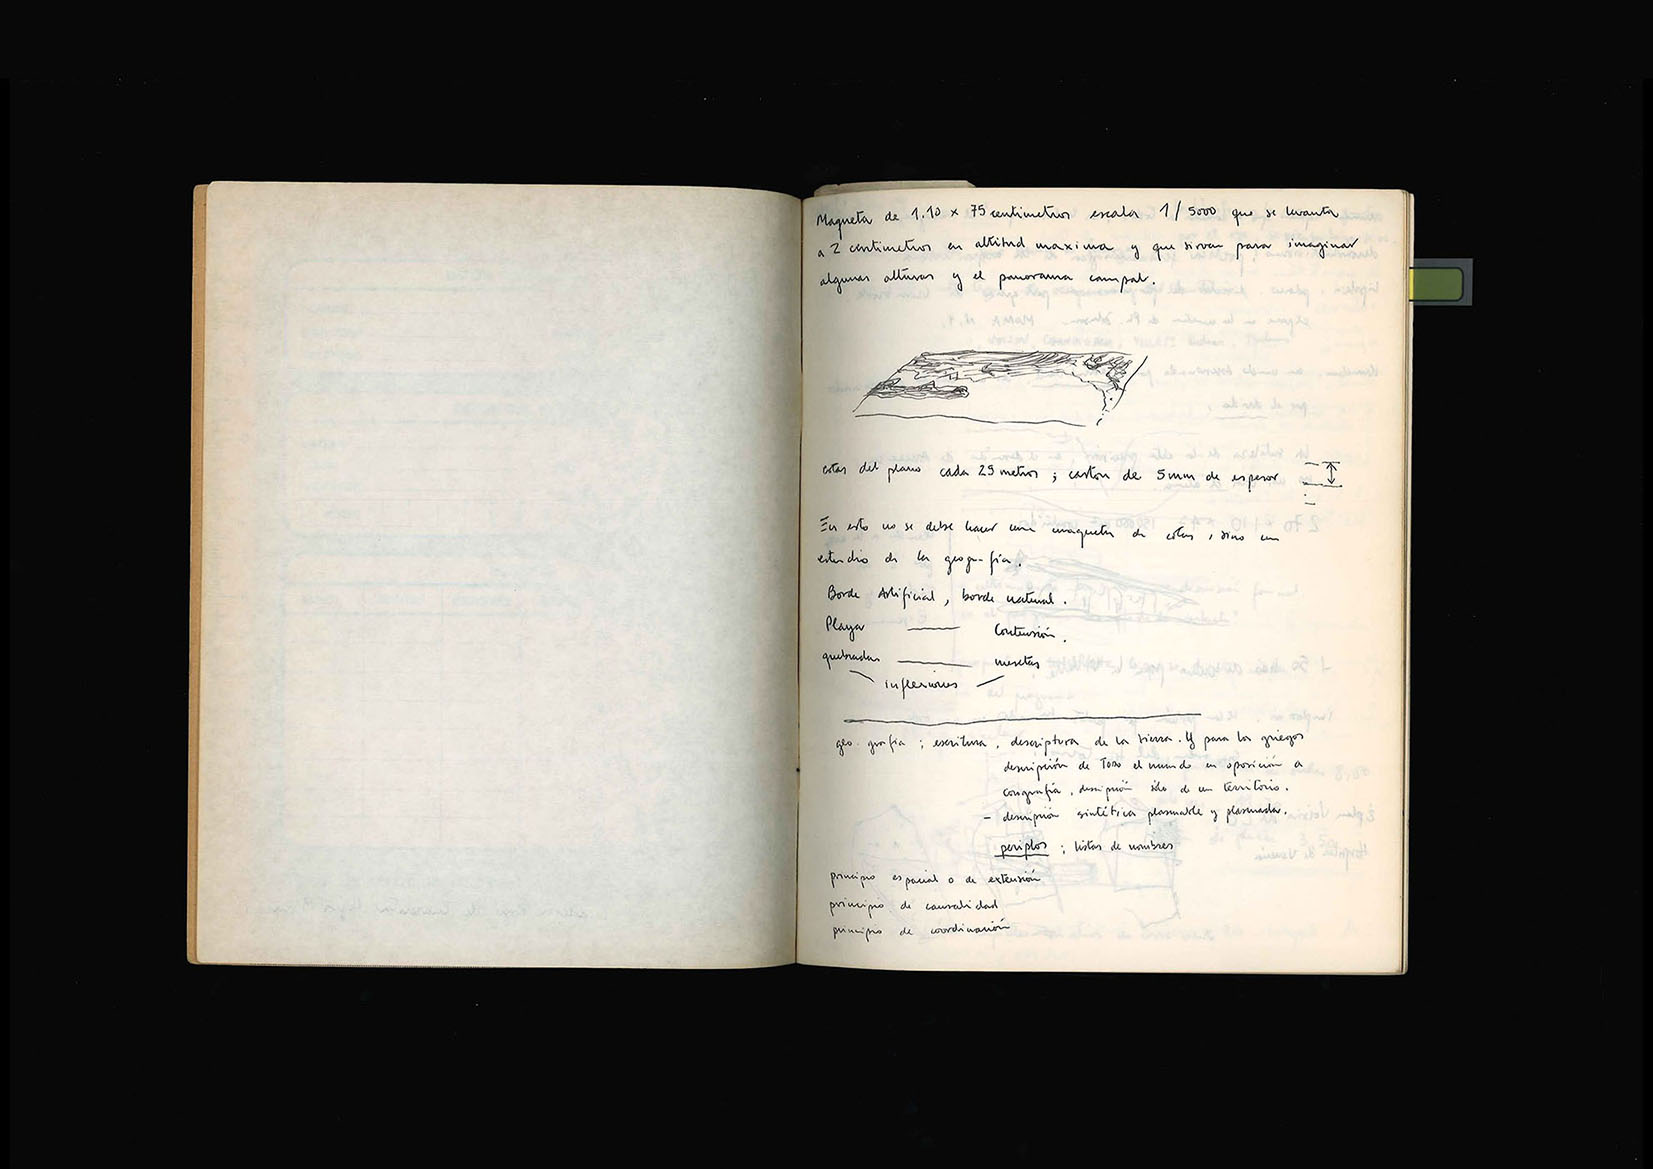 Maqueta de 1.10 x 75 centimetros escala 1/5000 que se levanta
a 2 centimetros en altitud maxima y que sirvan para imaginar
algunas alturas y el panorama campal.
cotas del plano cada 25 metros ; cartón de 5mm de espesor
En esto no se debe hacer una maqueta de cotas , sino un
estudio de la geografía.
Borde Artificial , borde natural .
Playa — Contensión .
quebradas — mesetas
inflexiones
geo-grafía ; escritura , descriptura de la tierra . Y para los griegos
descripción de Todo el mundo en oposición a
corografía , descripción sólo de un territorio .
- descripción sintética plasmable y plasmada .
periplos ; listas de nombres
principio espacial o de extensión
principio de causalidad
principio de coordinación